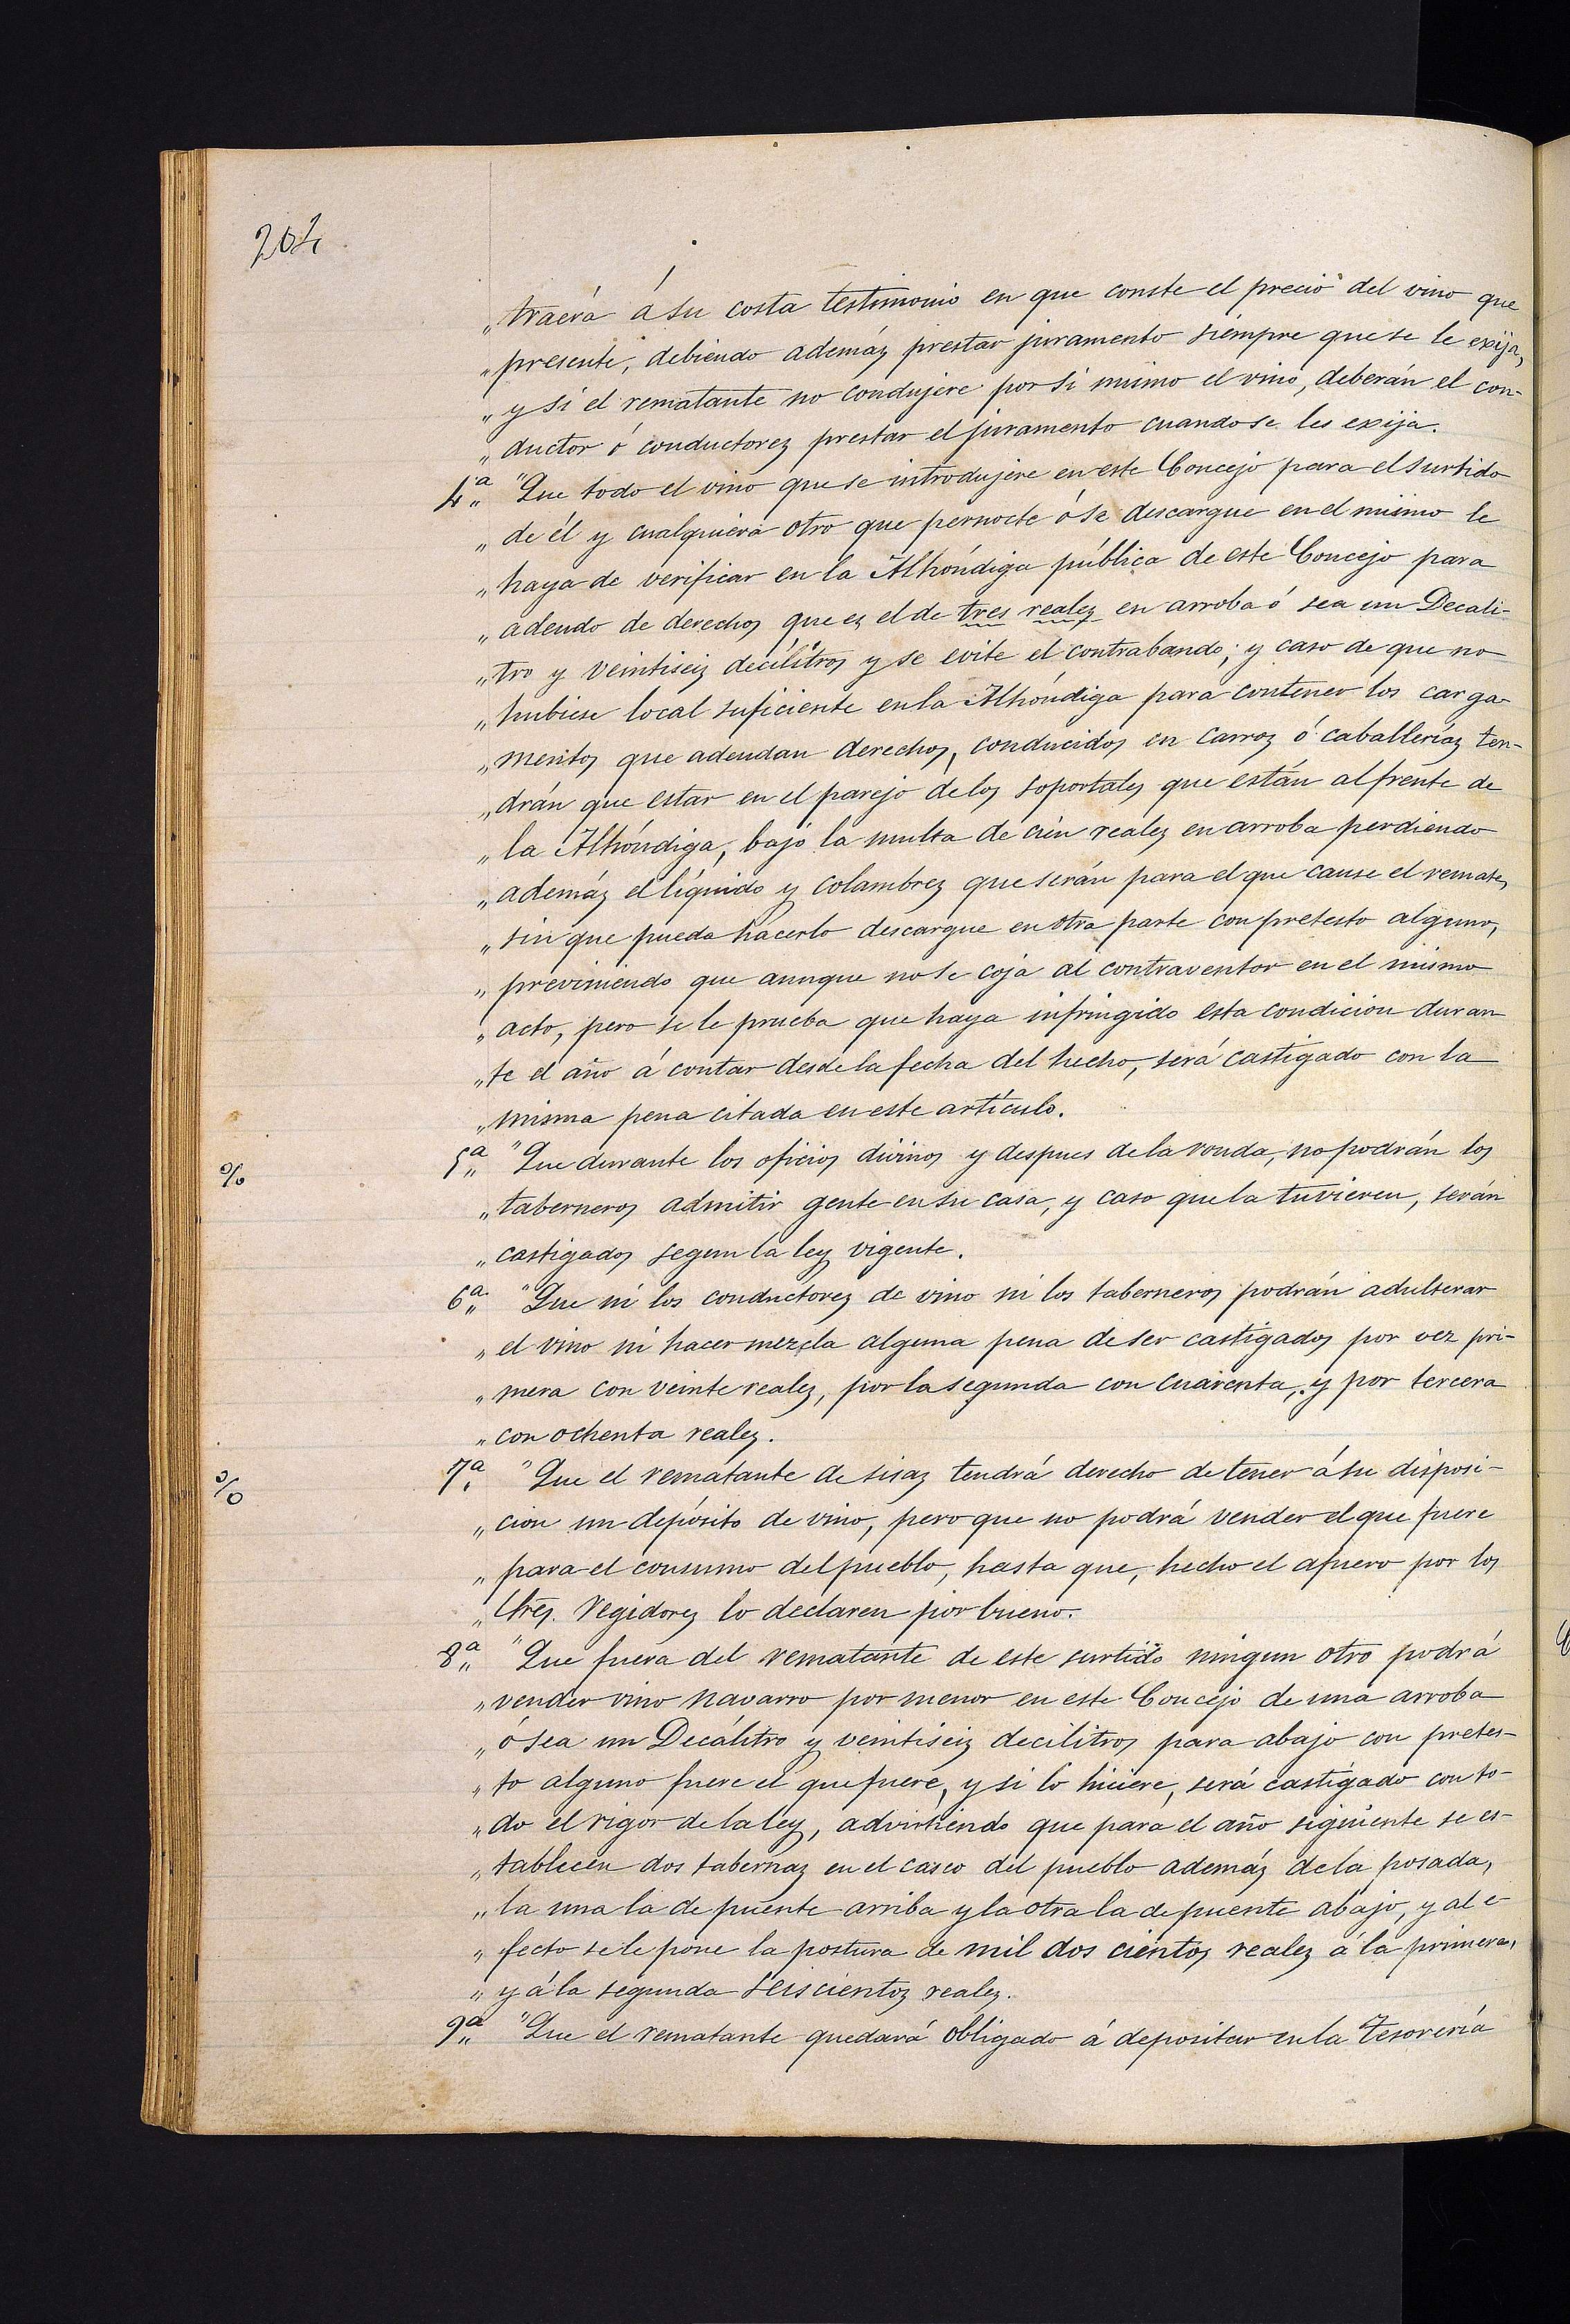 204
„ traerá á su costa testimonio en que conste el precio del vino que
„ presente, debiendo además prestar juramento siempre que se le exija,
„ y si el rematante no condujere por sí mismo el vino, deberán el con-
„ ductor ó conductores prestar el juramento cuando se les exija.
4ª „ "Que todo el vino que se introdujere en este Concejo para el surtido
„ de él y cualquiera otro que pernocte ó se descargue en el mismo le
„ haya de verificar en la Alhóndiga pública de este Concejo para
„ adeudo de derechos que es el de tres reales en arroba ó sea un Decali-
„ tro y veintiseis decílitros y se evite el contrabando; y caso de que no
„ hubiese local suficiente en la Alhóndiga para contener los carga-
„ mentos que adeudan derechos, conducidos en carros ó caballerías ten-
„ drán que estar en el parejo de los soportales que están al frente de
„ la Alhóndiga, bajo la multa de cién reales en arroba perdiendo
„ además el líquido y colambres que serán para el que cause el remate,
„ sin que pueda hacerlo descargue en otra parte con pretesto alguno,
„ previniendo que aunque no se coja al contraventor en el mismo
„ acto, pero se le prueba que haya infringido esta condicion duran
„ te el año á contar desde la fecha del hecho, será castigado con la
„ misma pena citada en este artículo.
%
5ª „ "Que durante los oficios divinos y despues de la ronda, no podrán los
„ taberneros admitir gente en su casa, y caso que la tuvieren, serán
„ castigados segun la ley vigente.
6ª „ "Que ni los conductores de vino ni los taberneros podrán adulterar
„ el vino ni hacer mezcla alguna pena de ser castigados por vez pri-
„ mera con veinte reales, por la segunda con cuarenta, y por tercera
„ con ochenta reales.
%
7ª „ "Que el rematante de sisas tendrá derecho de tener á su disposi-
„ cion un depósito de vino, pero que no podrá vender el que fuere
„ para el consumo del pueblo, hasta que, hecho el afuero por los
„ Sres. Regidores lo declaren por bueno.
8ª „ "Que fuera del rematante de este surtido ningun otro podrá
„ vender vino navarro por menor en este Concejo de una arroba
„ ó sea un Decálitro y veintiseis decilitros para abajo con pretes-
„ to alguno fuere el que fuere, y si lo hiciere, será castigado con to-
„ do el rigor de la ley, advirtiendo que para el año siguiente se es-
„ tablecen dos tabernas en el casco del pueblo además de la posada,
„ la una la de puente arriba y la otra la de puente abajo, y al e-
„ fecto se le pone la postura de mil dos cientos reales á la primera,
„ y á la segunda seiscientos reales.
9ª „ "Que el rematante quedará obligado á depositar en la Tesorería